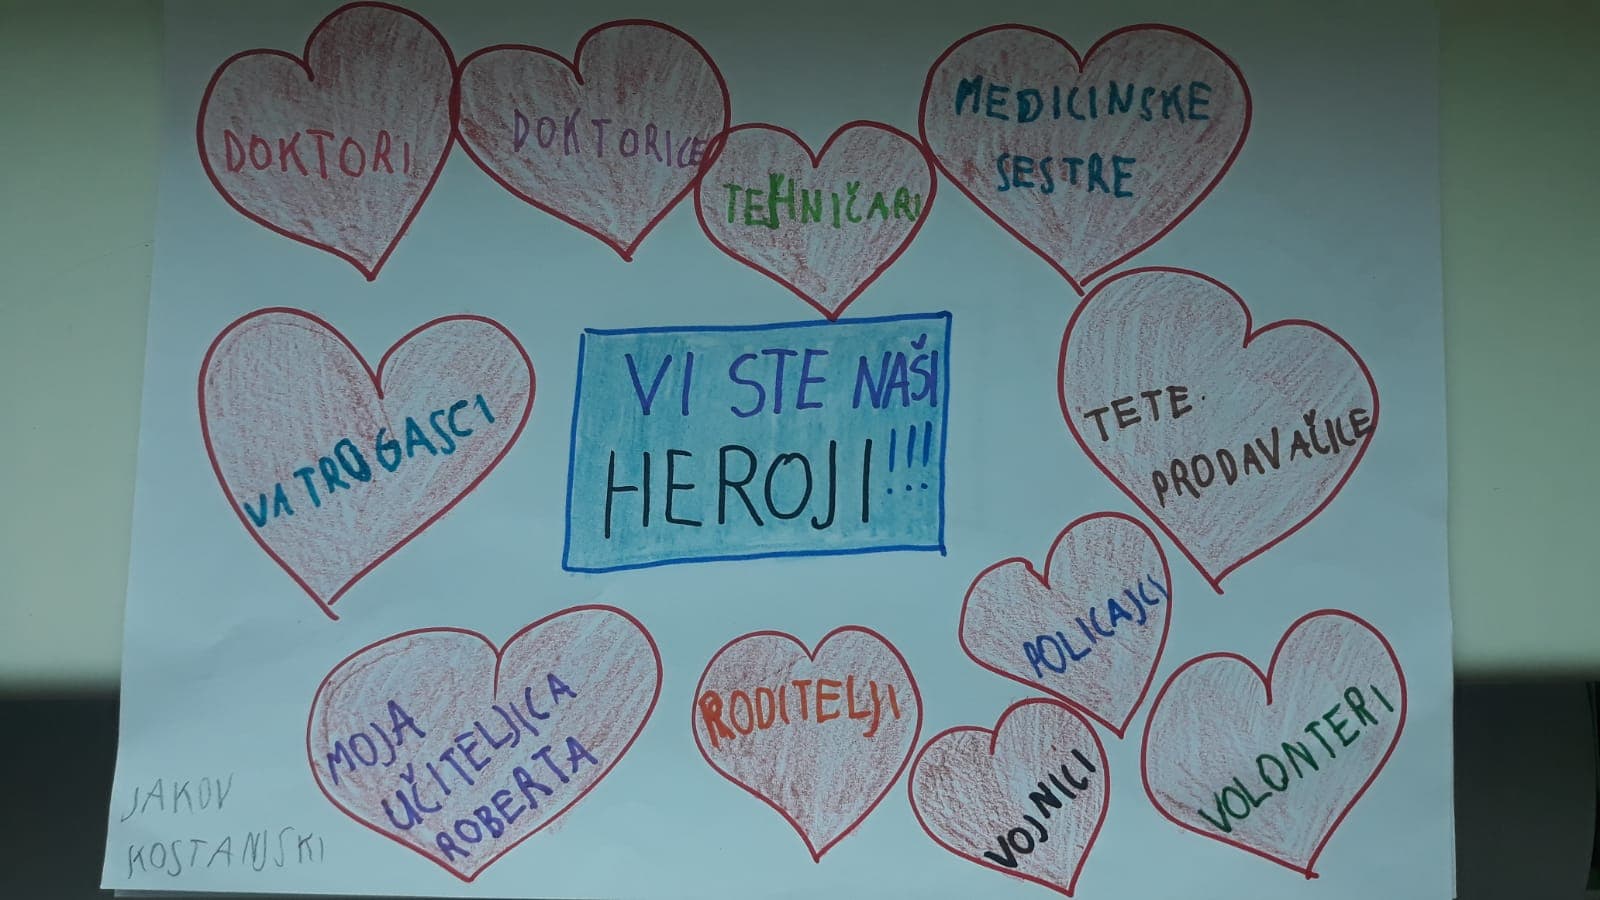 DOKTORI
DOKTORICE
TEHNIČARI
MEDICINSKE
SESTRE
VATROGASCI
VI STE NAŠI
HEROJI!!!
TETE
PRODAVAČICE
POLICAJCI
MOJA
UČITELJICA
ROBERTA
RODITELJI
VOJNICI
VOLONTERI
JAKOV
KOSTANJSKI